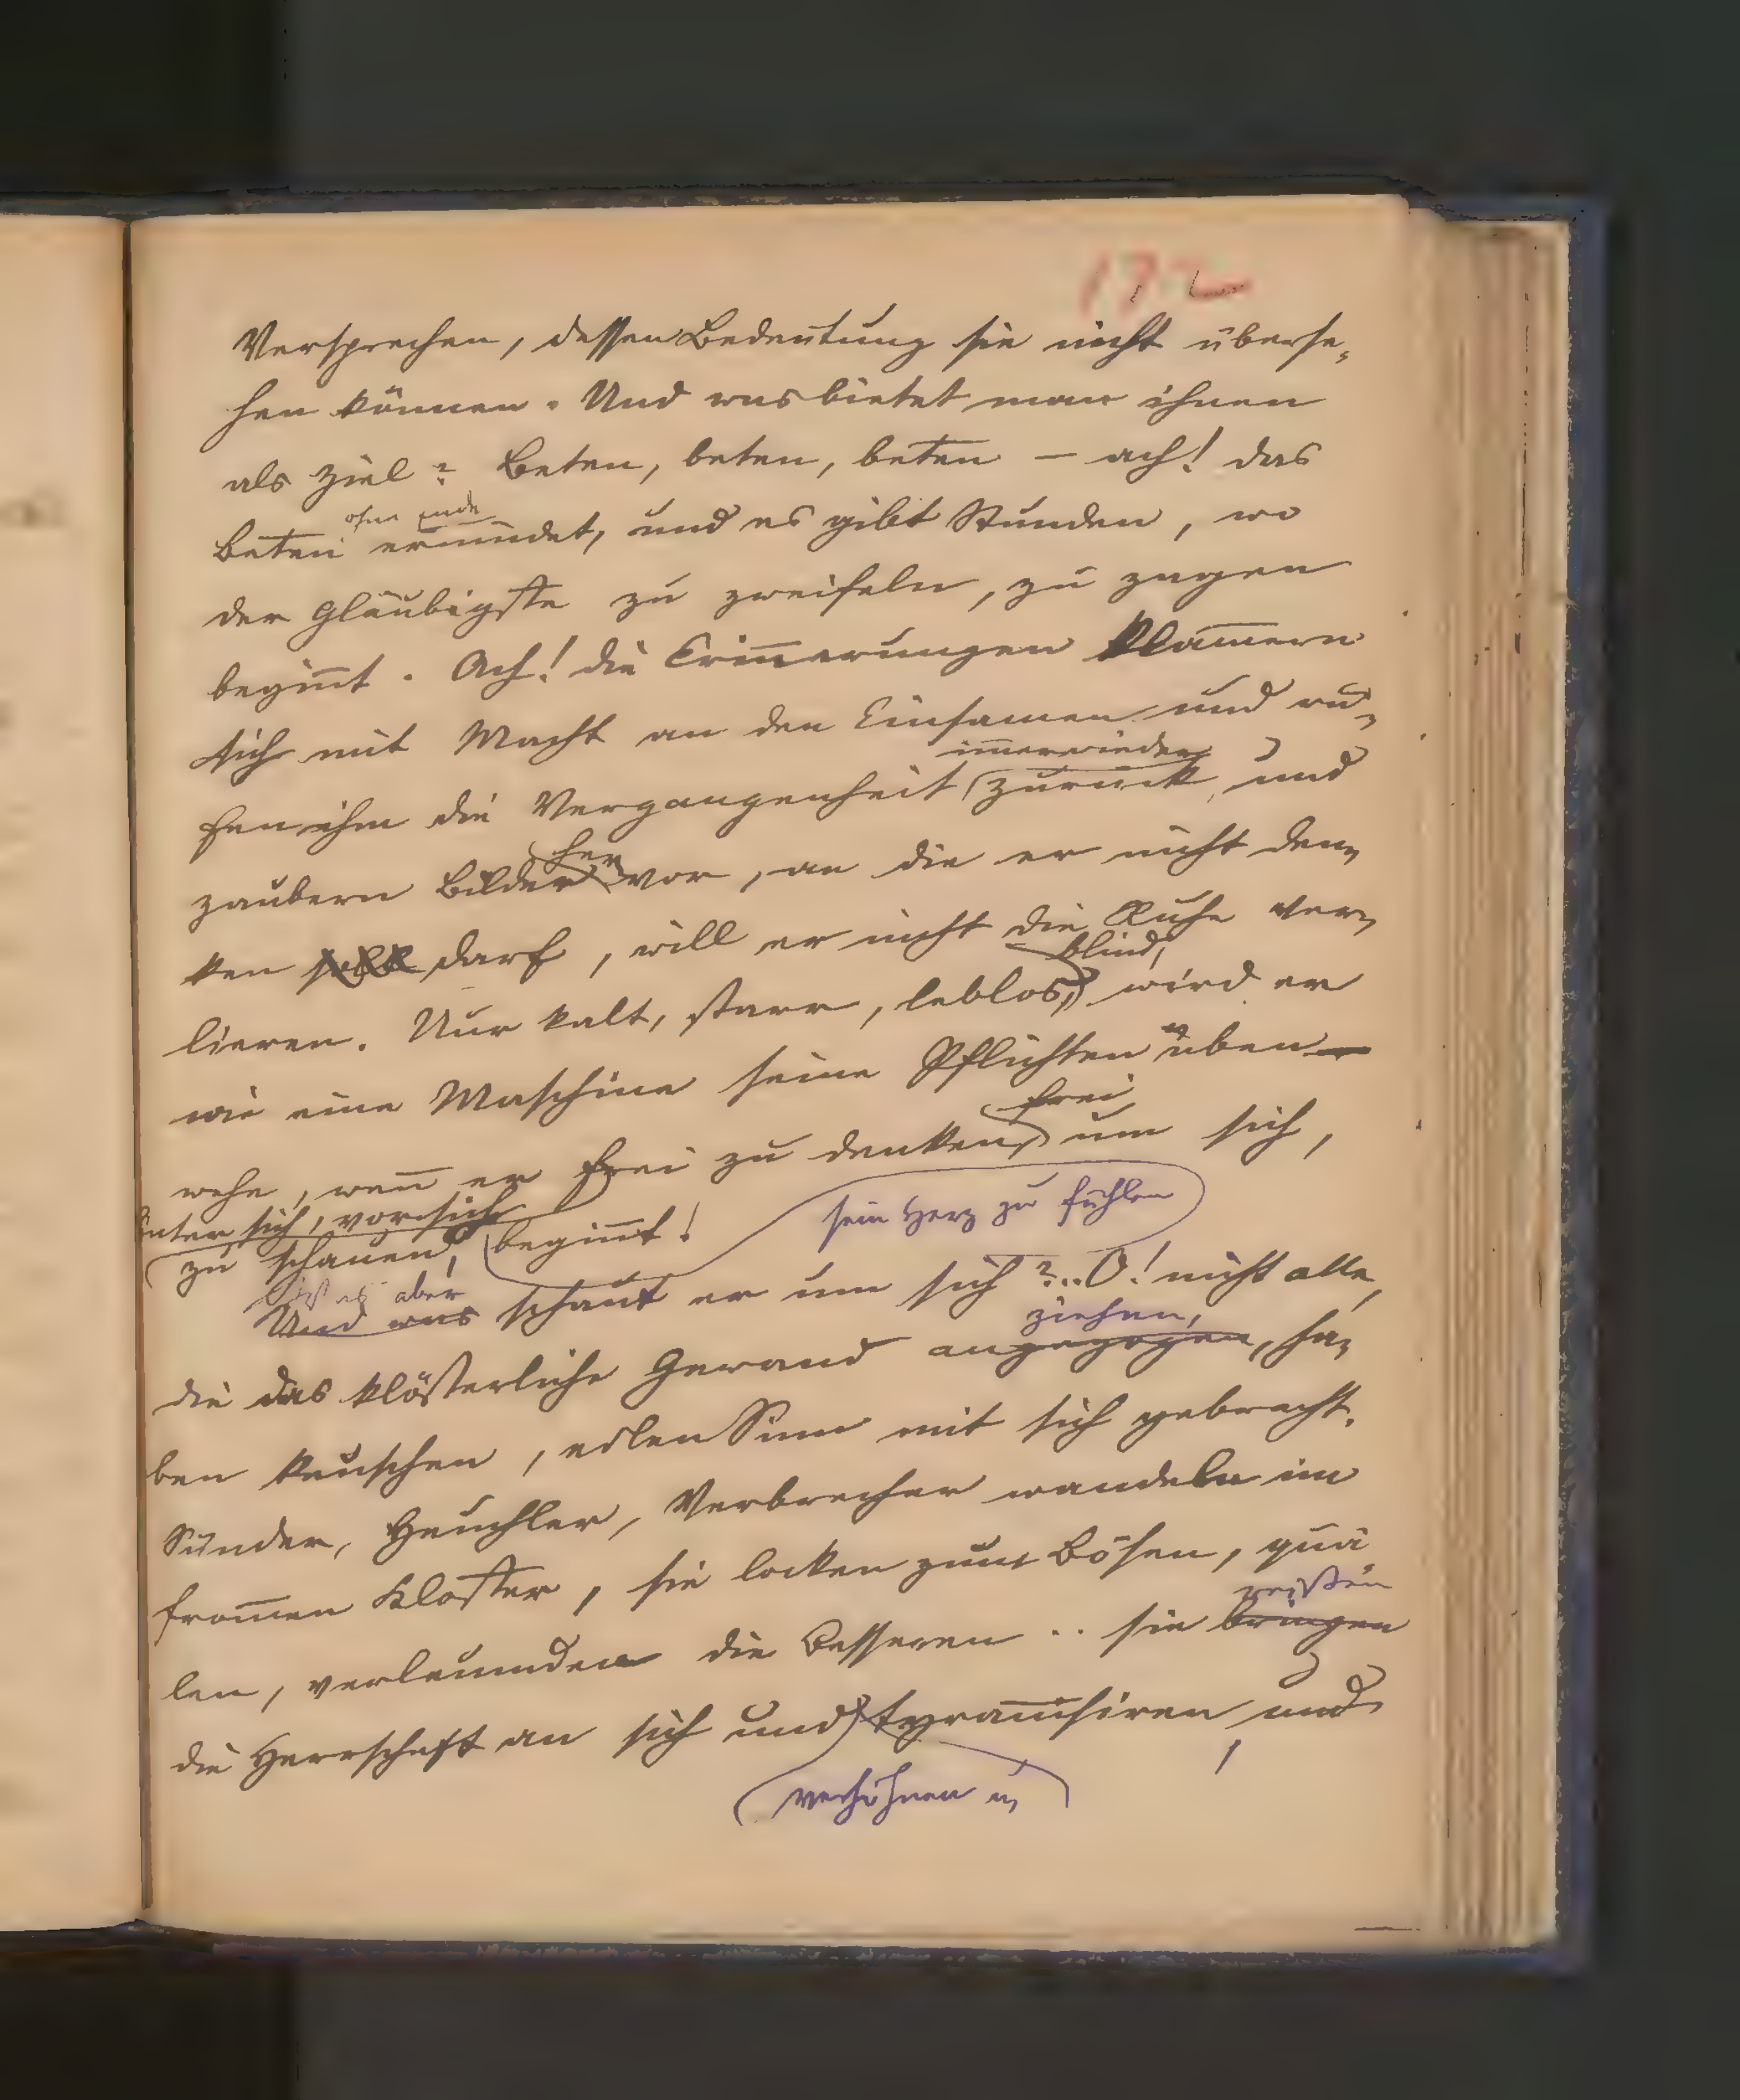 172
Versprechen, dessen Bedeutung sie nicht überse-
hen können. Und was bietet man ihnen
als Ziel? Beten, beten, beten — ach! das
ohne Ende
Beten ermüdet, und es gibt Stunden, wo
der Gläubigste zu zweifeln, zu zagen
begin̄t. Ach! die Erin̄erungen klam̄ern
sich mit Macht an den Einsamen und ru-
im̄erwieder
fen ihm die Vergangenheit zurück, und
her
zaubern Bilder vor, an die er nicht den-
ken soll darf, will er nicht die Ruhe ver-
blind,
lieren. Nur kalt, starr, leblos, wird er
wie eine Maschine seine Pflichten üben
frei
wehe, wen̄ er frei zu denken, um sich,
hinter sich, vor sich
sein Herz zu fühlen
zu schauen, begin̄t!
ist es aber
Und was schaut er um sich?.. O! nicht alle,
ziehen,
die das klösterliche Gewand angezogen, ha-
ben keuschen, edlen Sinn mit sich gebracht.
Sünder, Heuchler, Verbrecher wandeln im
from̄en Kloster, sie locken zum Bösen, quä
reißen
len, verleumden die Besseren .. sie bringen
die Herrschaft an sich und tyran̄isiren und
verhöhnen u